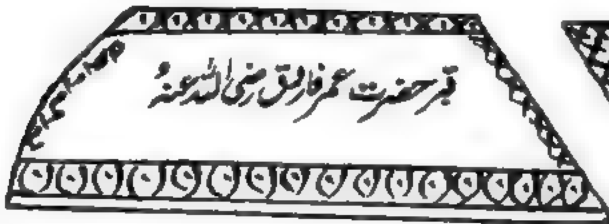 قبر حضرت عمر فاروق رضی اللہ عنہُ